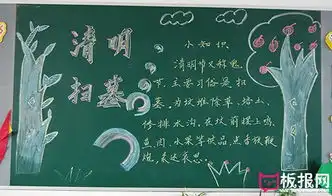 清明
扫墓
小知识
清明节又称鬼
节,主要习俗是扫
墓,为坟堆除草、培土、
修排水沟,在坟前摆上鸡、
鱼肉、水果等供品,点香放鞭
炮,表达哀思。
板报网